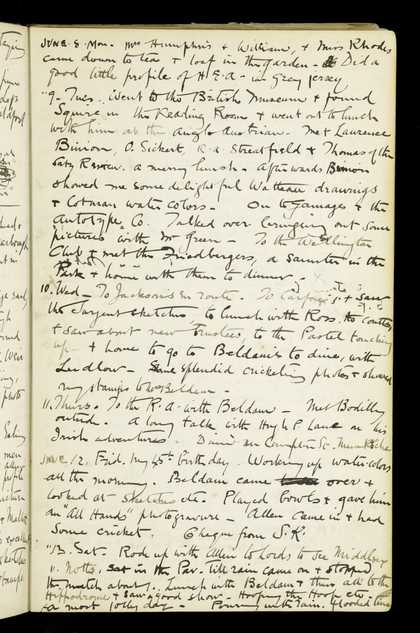 JUNE 8. Mon. Mrs Humphris & William, & Miss Rhodes
came down to tea & loaf in the garden - Did a
good little profile of H.E.A. in grey jersey
"9. Tues. Went to the British Museum & found
Squire in the Reading Room & went out to lunch
with him at the Anglo Austrian. Met Laurence
Binion, O. Sickert, R.A. Streatfield & Thomas of the
Saty Review. a merry lunch. Afterwards Binion
showed me some delightful Watteau drawings
& Cotman water colors. On to Gamages & the
Autotype Co. Talked over bringing out some
pictures with Mr Green - To the Wellington
Club & met the Friedbergers, a saunter in the
Park & home with them to dinner.
10. Wed - To Jackson's en route. To Carfax's & saw
the Sargent sketches to lunch with Ross.
& saw about new Trustees, to the Pastel touching
up - & home to go to Beldam's to dine, with
Ludlow - Some splendid cricketing photos & showed
my stamps to Beldam -
11. Thurs. To the R.A. with Beldam - Met Bodilly
outside. A long talk with Hugh P Lane on his
Irish adventures. Dined at
JUNE 12. Frid. my 45th birthday. Working up water colors
all the morning. Beldam came over &
looked at sketches etc. Played bowls & gave him
an "All Hands" photogravure - Allen came in & had
some cricket. Cheque from S.K.
"13. Sat. Rode up with Allen to Lords to see Middlesex
v. Notts, sat in the Pav. till rain came on & stopped
the match about 4. Lunch with Beldam & then all to the
Hippodrome & saw a good show - Hooping the Hoop etc -
& a most jolly day - Pouring with rain. flooded